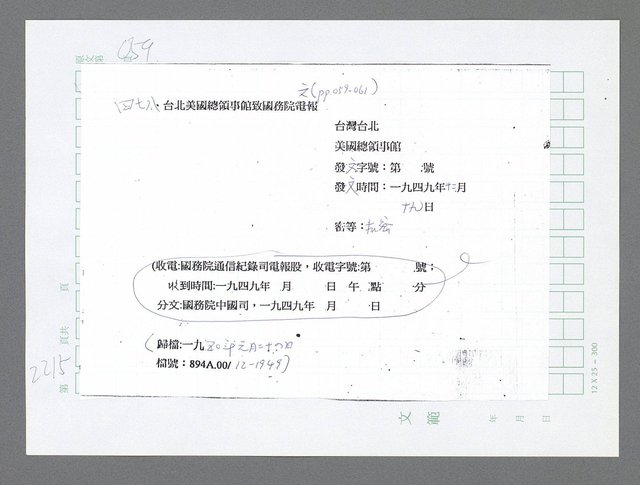 059
文(pp.059-061)
四七八、台北美國總領事館致國務院電報
台灣台北
美國總領事館
發文字號：第　　號
發文時間：一九四九年十二月
十九日
密等：機密
(收電:國務院通信紀錄司電報股，收電字號:第　　號；
收到時間:一九四九年　月　　日　午　點　　分
分文:國務院中國司，一九四九年　月　　日
(歸檔:一九五〇年元月二十六日
檔號：894A.00/12-1949)
頁
頁共
第
2215
12 X 25 - 300
文　範
年　月　日